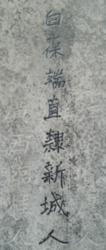 白保端直隸新城人